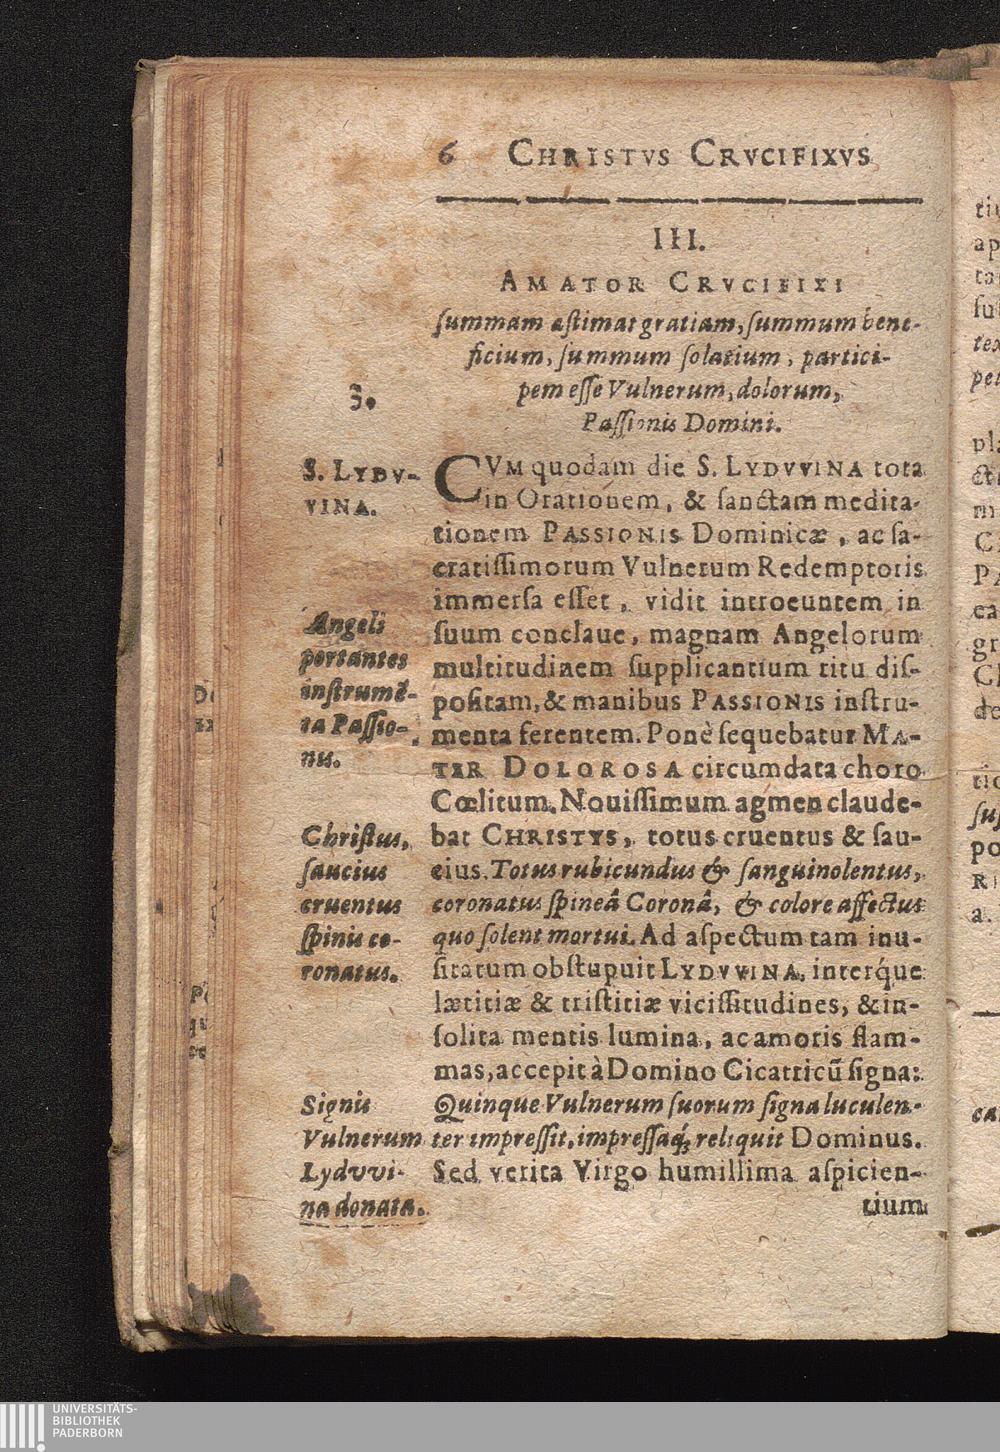 6 CHRISTVS CRVCIFIXVS
III.
AMATOR CRVCIFIXI
ſummam æſtimat gratiam, ſummum bene-
ficium, ſummum ſolatium, partici-
pem eſſe Vulnerum, dolorum,
Paſſionis Domini.
3.
S. LYDV-
VINA.
CVM quodam die S. LYDVVINA tota
in Orationem, & ſanctam medita-
tionem PASSIONIS Dominicæ, ac ſa-
cratiſſimorum Vulnerum Redemptoris
immerſa eſſet, vidit introeuntem in
ſuum conclaue, magnam Angelorum
multitudinem ſupplicantium ritu diſ-
poſitam, & manibus PASSIONIS inſtru-
menta ferentem. Ponè ſequebatur MA-
TER DOLOROSA circumdata choro
Cœlitum. Nouiſſimum agmen claude-
bat CHRISTVS, totus cruentus & ſau-
cius. Totus rubicundus & ſanguinolentus,
coronatus ſpineâ Coronâ, & colore affectus
quo ſolent mortui. Ad aſpectum tam inu-
ſitatum obſtupuit LYDVVINA, interq́ue
lætitiæ & triſtitiæ viciſſitudines, & in-
ſolita mentis lumina, ac amoris flam-
mas, accepit à Domino Cicatricū ſigna:
Quinque Vulnerum ſuorum ſigna luculen-
ter impreſſit, impreſſaq́; reliquit Dominus.
Sed verita Virgo humillima aſpicien-
tium
Angeli
portantes
inſtrumē-
ta Paſſio-
nis.
Chriſtus,
ſaucius
cruentus
ſpinis co-
ronatus.
Signis
Vulnerum
Lydvvi-
na donata.
UNIVERSITÄTS-
BIBLIOTHEK
PADERBORN